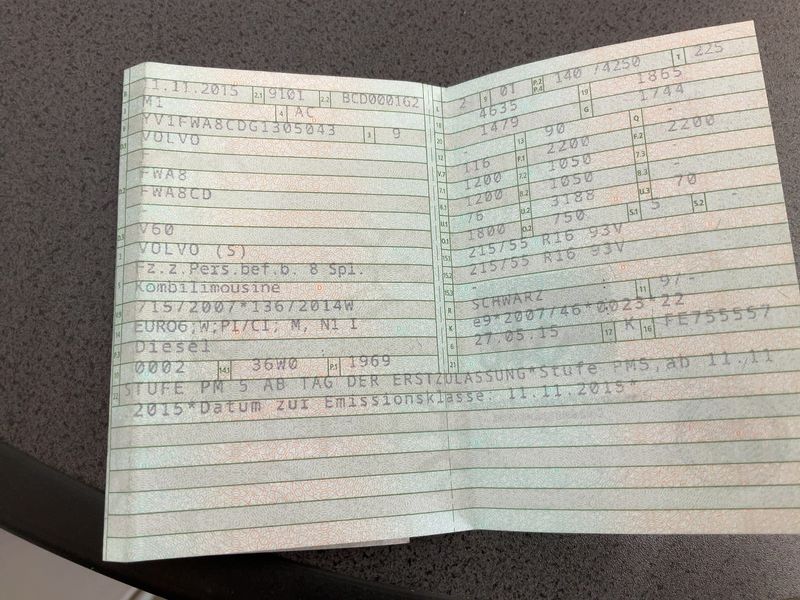 11.11.2015 2.1 9101 2.2 BCD000162
M1 4 AC
YV1FWA8CDG1305043 3 9
VOLVO
F
FWA8
FWA8CD
-
V60
VOLVO (S)
Fz.z.Pers.bef.b. 8 Spl.
Kombilimousine
715/2007*136/2014W
EURO6;W;PI/CI; M, N1 I
Diesel
0002 14.1 36W0 P.1 1969
L 2 9 01 P.2 P.4 140 /4250 T 225
18 4635 19 1865
20 1479 G 1744
12 - 13 90 Q -
V.7 116 F.1 2200 F.2 2200
7.1 1200 7.2 1050 7.3 -
8.1 1200 8.2 1050 8.3 -
U.1 76 U.2 3188 U.3 70
O.1 1800 O.2 750 S.1 5 S.2 -
15.1 215/55 R16 93V
15.2 215/55 R16 93V
15.3 -
R SCHWARZ 11 9/-
K e9*2007/46*0023*22
6 27.05.15 17 K 16 FE755557
21
STUFE PM 5 AB TAG DER ERSTZULASSUNG*Stufe PM5,ab 11.11
2015*Datum zur Emissionsklasse: 11.11.2015*